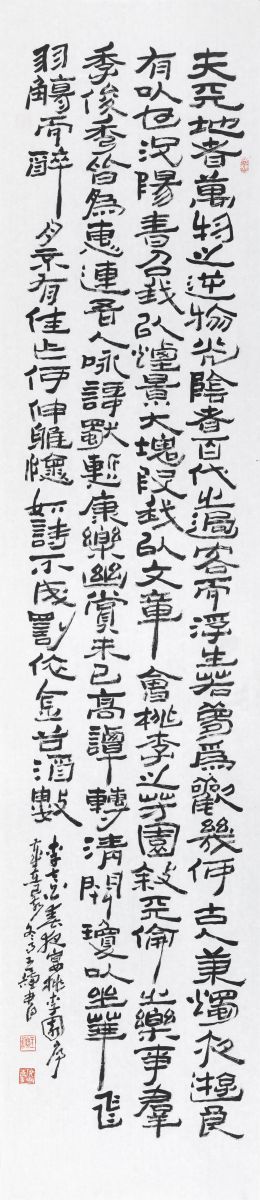 夫天地者萬物之逆旅光陰者百代之過客而浮生若夢為歡幾何古人秉燭夜遊良
有以也況陽春召我以煙景大塊段我以文章會桃李之芳園敘天倫之樂事羣
季俊秀皆為惠連吾人詠謌獨慚康樂幽賞未已高譚轉清開瓊以坐華飛
羽觴而醉月不有佳作何伸雅懷如詩不成罰依金谷酒數
李白春夜宴桃李園序
書